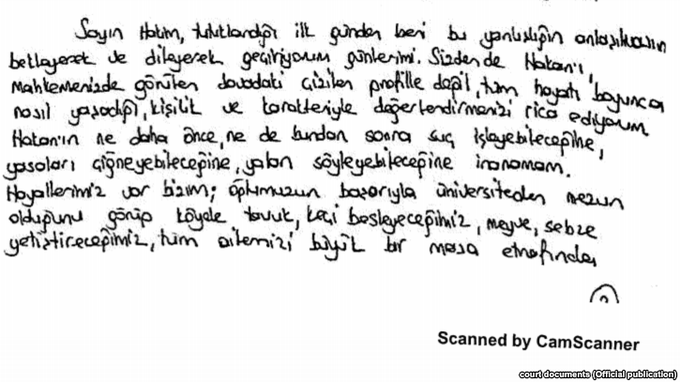 Sayın Hakim, tutuklandığı ilk günden beri bu yanlışlığın anlaşılmasını
bekleyerek ve dileyerek geçiriyorum günlerimi. Sizden de Hakan'ı,
Mahkemenizde görülen davadaki çizilen profille değil, tüm hayatı boyunca
nasıl yaşadığı, kişilik ve karakteriyle değerlendirmenizi rica ediyorum
Hakan'ın ne daha önce, ne de bundan sonra suç işleyebileceğine,
yasaları çiğneyebileceğine, yalan söyleyebileceğine inanamam.
Hayallerimiz var bizim; oğlumuzun başarıyla üniversiteden mezun
olduğunu görüp köyde tavuk, keçi besleyeceğimiz, meyve, sebze
yetiştireceğimiz, tüm ailemizi büyük bir masa etrafından
Scanned by CamScanner
court documents (Official publication)